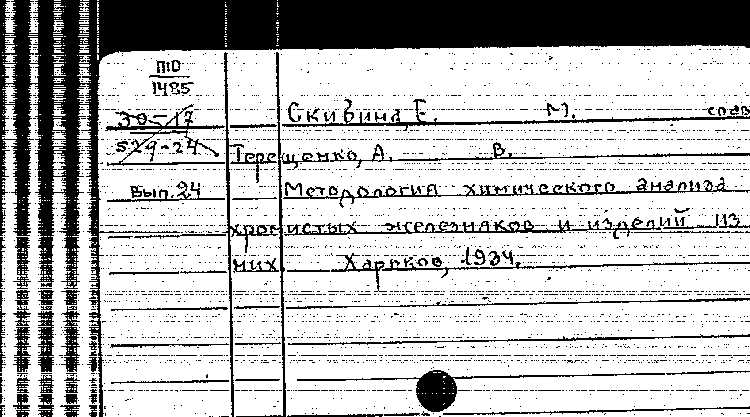 ПО
1485
30-17
Скивина, Е. М.
529-24
Терещенко, А. В.
Вып. 24
Методология химического анализа
хромистых железняков и изделий из
них. Харьков, 1934.